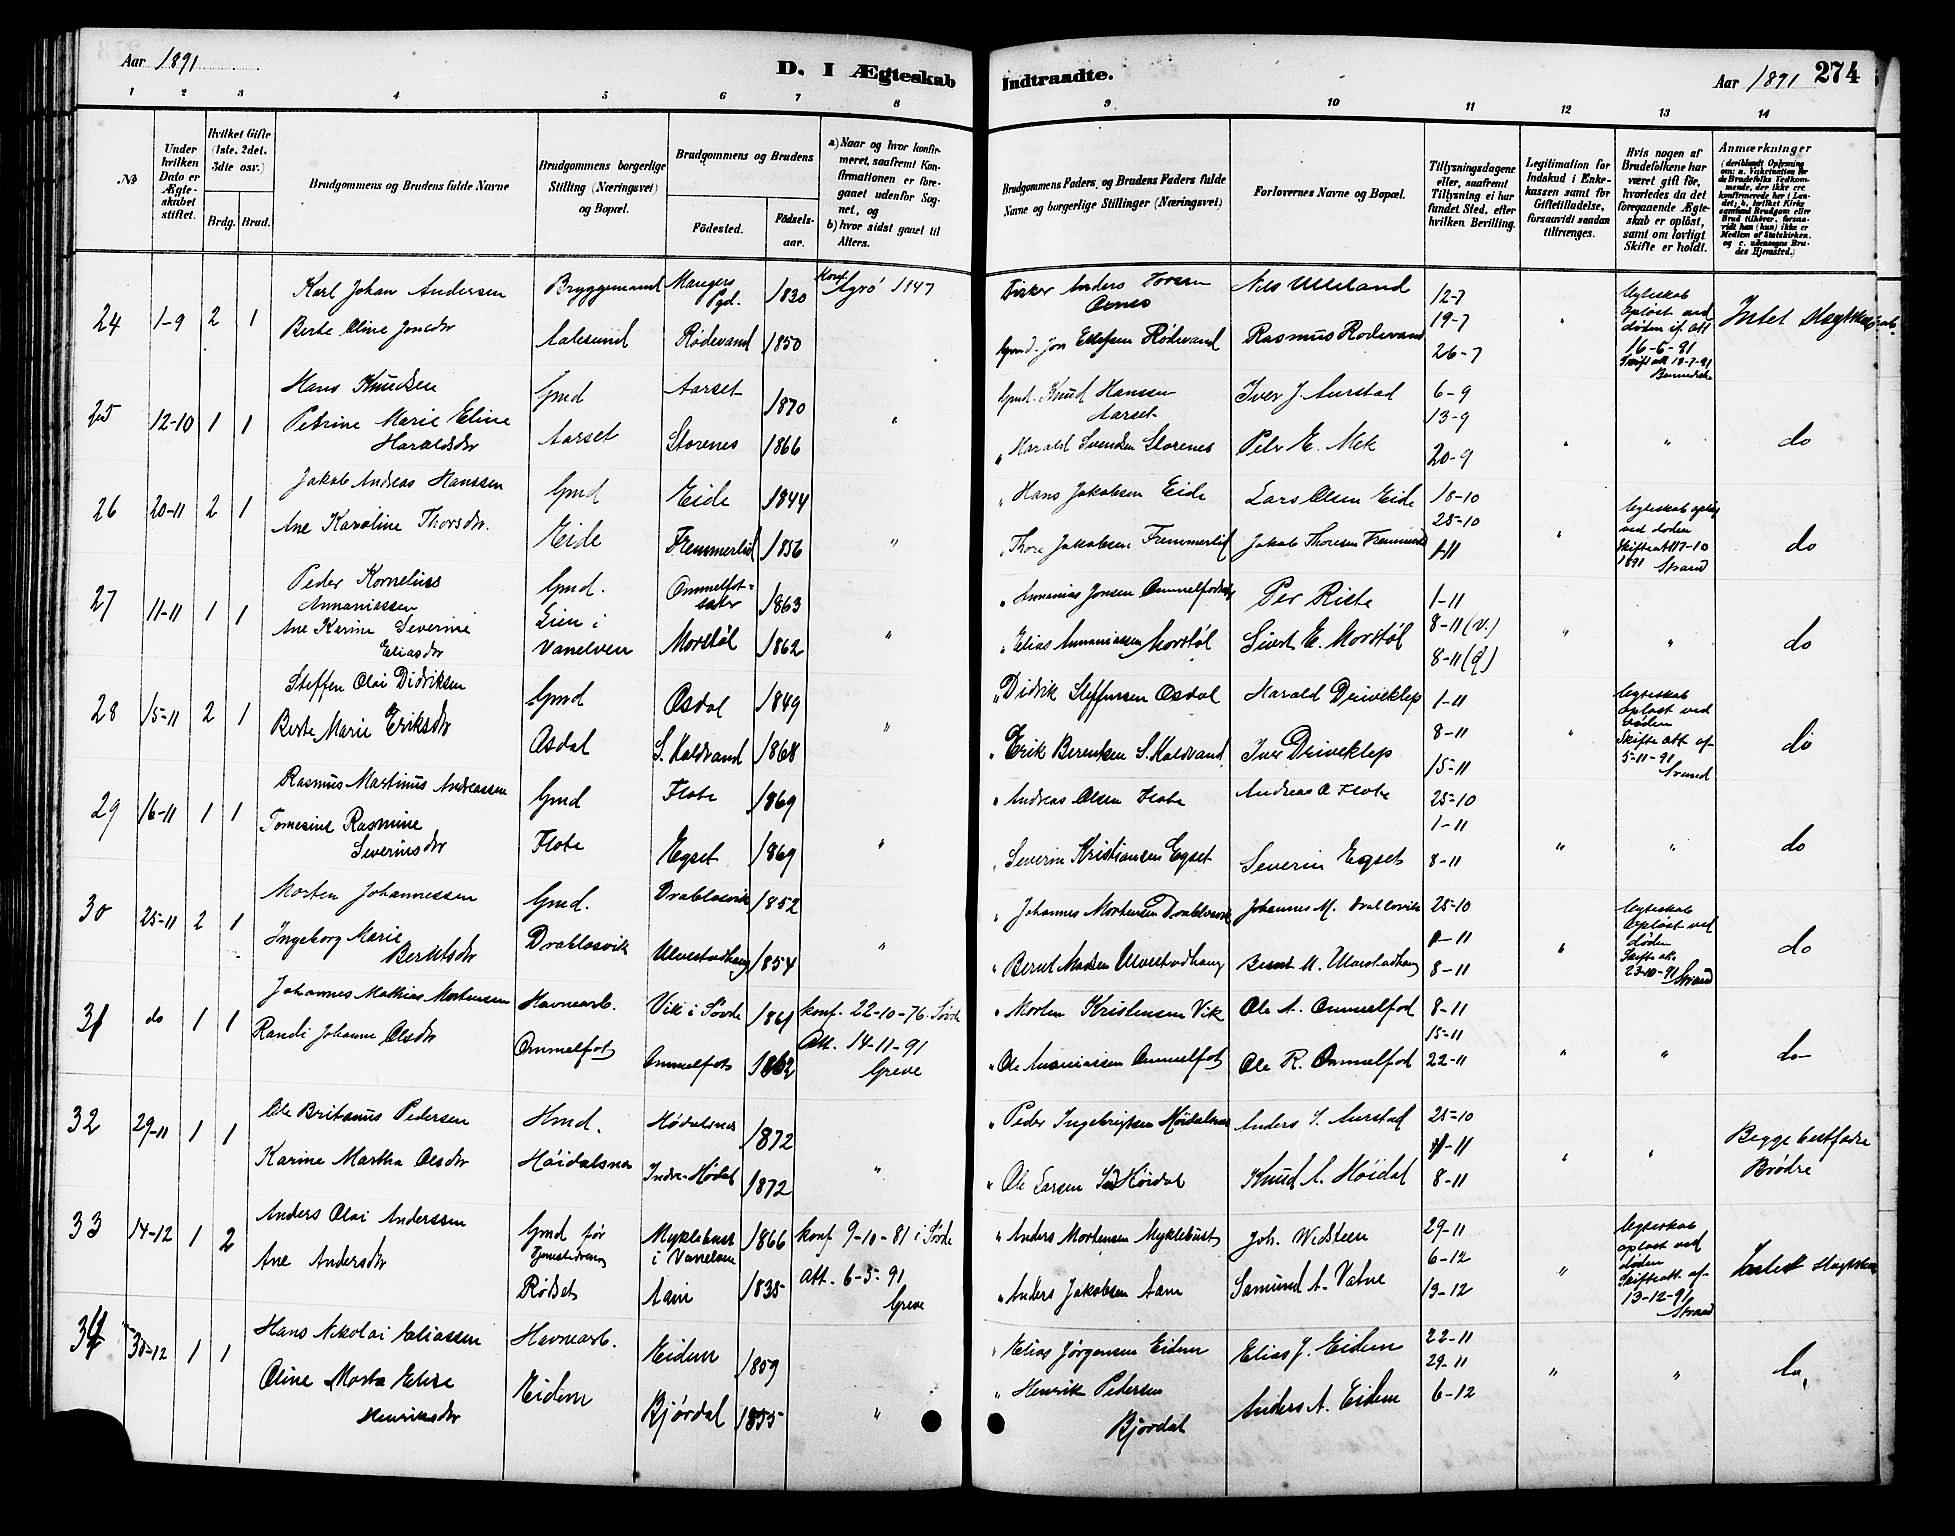 Aar 1891
D. I Ægteskab
Indtraadte.
Aar 1891
274
1 2 3 4 5 6 7 8 9 10 11 12 13 14
No
Under hvilken Dato er Ægteskabet stiftet.
Hvilket Gifte (1ste, 2det, 3die osv.)
Brdg. Brud.
Brudgommens og Brudens fulde Navne
Brudgommens borgerlige Stilling (Næringsvei) og Bopæl.
Brudgommens og Brudens
Fødested.
Fødselsaar.
a) Naar og hvor konfirmeret, saafremt Konfirmationen er foregaaet udenfor Sognet, og
b) hvor sidst gaaet til Alters.
Brudgommens Faders, og Brudens Faders fulde Navne og borgerlige Stillinger (Næringsvei)
Forlovernes Navne og Bopæl.
Tillysningsdagene eller, saafremt Tillysning ei har fundet Sted, efter hvilken Bevilling.
Legitimation for Indskud i Enkekassen samt for Giftetilladelse, forsaavidt saadan tiltrænges.
Hvis nogen af Brudefolkene har været gift før, hvorledes da det foregaaende Ægteskab er opløst, samt om lovligt Skifte er holdt.
Anmærkninger
24 1-9 2 1
Karl Johan Andersen
Berte Oline Jonsdr
Bryggemand
Aalesund
Mangers Pgd. 1830
Rødevand 1850
Konf. 1847
Fisker Anders
Gmd. Jon Ellefsen Rødevand
Nils Ulleland
Rasmus Rødevand
12-7
19-7
26-7
Ægteskab opløst ved døden
16-6-91
Intet Slægtskab.
25 12-10 1 1
Hans Knudsen
Petrine Marie Eline Haraldsdr
Gmd
Aarset
Aarset 1870
Storenes 1866
"
Gmd. Knud Hanssen Aarset
" Harald Svendsen Storenes
Iver J. Aurstad
Peter E. Mek
6-9
13-9
20-9
" "
do
26 20-11 2 1
Jakob Andreas Hanssen
Ane Karoline Thorsdr.
Gmd
Eide
Eide 1844
Fremmerlid 1856
"
" Hans Jakobsen Eide
" Thore Jakobsen Fremmerlid
Lars Olsen Eide
Jakob Thoresen Fremmerlid
18-10
25-10
1-11
"
Ægteskab opløst ved døden
Skifteatt 17-10 1891 Strand
do
27 11-11 1 1
Peder Kornelius Annaniassen
Ane Karine Severine Eliasdr
Gmd.
Lien i Vanelven
Ommelfotsæter 1863
Morstøl 1862
"
" Annanias Jonsen
" Elias Annaniassen Morstøl
Per Riste
Sivert E. Morstøl
1-11
8-11 (V.)
8-11
" "
do
28 15-11 2 1
Steffen Olai Didriksen
Berte Marie Eriksdr
Gmd
Osdal
Osdal 1849
S. Kaldvand 1868
"
" Didrik Steffensen Osdal
" Erik Berentsen S. Kaldvand
Harald Driveklep
Iver Driveklep
1-11
8-11
15-11
"
Ægteskab opløst ved døden
Skifte att af 5-11-91 Strand
do
29 16-11 1 1
Rasmus Martinus Andreassen
Tomesine Rasmine Severinsdr
Gmd
Flote
Flote 1869
Egset 1869
"
" Andreas Olsen Flote
" Severin Kristiansen Egset
Andreas O Flote
Severin Egset
25-10
1-11
8-11
" "
do
30 25-11 2 1
Morten Johannessen
Ingeborg Marie Berntsdr
Gmd.
Drabløsvik
Drabløsvik 1852
Ulvestadhaug 1854
"
" Johannes Mortensen Drabløsvik
" Bernt Madsen Ulvestadhaug
Johannes M. Drabløsvik
Bernt M. Ulvestadhaug
25-10
1-11
8-11
"
Ægteskab opløst ved døden
Skifte att. 23-10-91 Strand
do
31 do 1 1
Johannes Mathias Mortensen
Randi Johanne Olsdr
Havnearb.
Ommelfot
Vik i Søvde 1861
Ommelfot 1862
konf. 22-10-76 Søvde
Att. 14-11-91
Greve
" Morten Kristensen Vik
" Ole Ananiassen Ommelfot
Ole A. Ommelfod
Ole R. Ommelfod
8-11
15-11
22-11
" "
do
32 29-11 1 1
Ole Britanus Pedersen
Karine Martha Olsdr
Hmd.
Høidalsnes
Hødalsnes 1872
Indre-Hødal 1872
"
" Peder Ingebrigtsen Høidalsnes
" Ole Larsen Ind. Høidal
Anders S. Aurstad
Knud A. Høidal
25-10
1-11
8-11
" "
Begge bestfædre Brødre
33 14-12 1 2
Anders Olai Anderssen
Ane Andersdr
Gmd før
Rødset
Myklebust i Vanelven 1866
Aam 1835
konf 9-10-81 i Søvde
Att. 6-5-91
Greve
" Anders Mortensen Myklebust
" Anders Jakobsen Aam
Joh. Widsteen
Samund A. Vatne
29-11
6-12
13-12
"
Ægteskab opløst ved døden
Skifteatt. af 13-12-91 Strand
Intet Slægtskab
34 30-12 1 1
Hans Nikolai Eliassen
Oline Marta Elise Henriksdr
Havnearb.
Eidem
Eidem 1859
Bjørdal 1855
"
" Elias Jørgensen Eidem
" Henrik Pedersen Bjørdal
Elias J. Eidem
Anders A. Eidem
22-11
29-11
6-12
" "
do